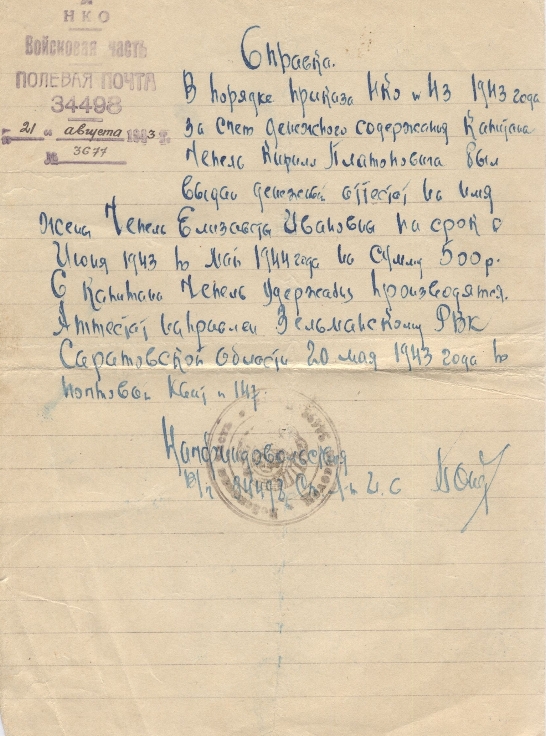 НКО
Войсковая часть
ПОЛЕВАЯ ПОЧТА
34498
"21" августа 1943 г.
№ 3677
Справка.
В порядке приказа НКО № 1943 года
за счет денежного содержания Капитана
Чепель Кирилл Платоновича был
выдан денежный аттестат на имя
жены Чепель Елизавета Ивановна на срок с
Июня 1943 по май 1944 года на сумму 500 р.
С Капитана Чепель удержания производятся.
Аттестат направлен Зельманскому РВК
Саратовской области 20 мая 1943 года по
почтовой квит № 147.
Начфиндовольствия
в/ч 34498 Ст. л-т И. С.